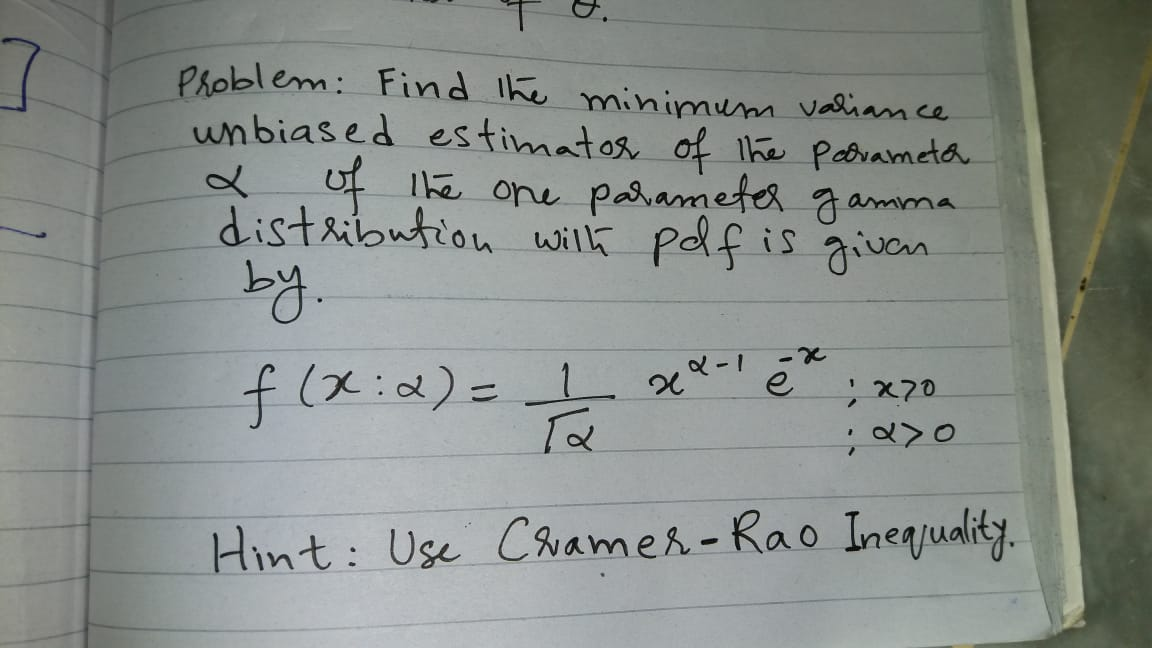 Problem: Find the minimum variance
unbiased estimator of the parameter
α of the one parameter gamma
distribution with pdf is given
by.
f(x:α) = 1/Γα x^α-1 e^-x ; x>0
; α>0
Hint: Use Cramer-Rao Inequality.